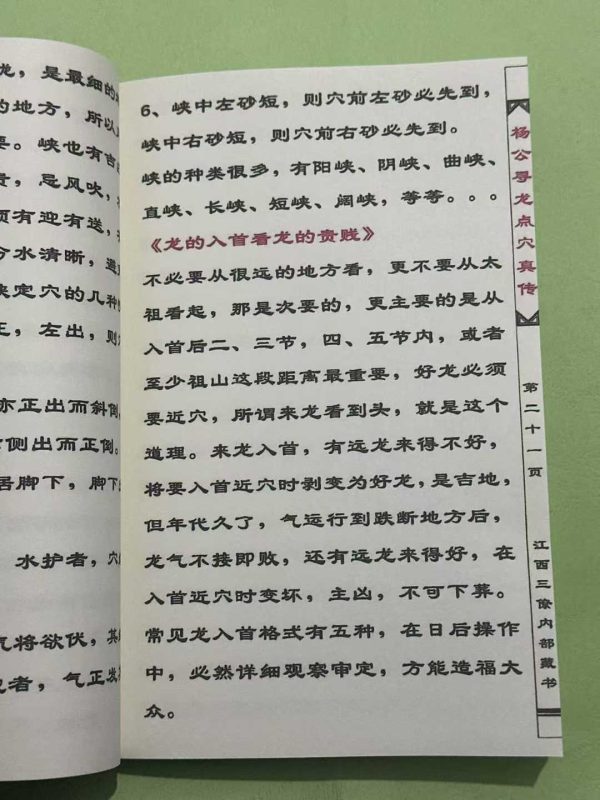 龙，是最细的
的地方，所以
要。峡也有吉
贵，忌风吹，
须有迎有送，
分水清晰，
峡定穴的几种
正，左出，则
亦正出而斜倒，
侧出而正倒。
居脚下，脚下
水护者，穴
气将欲伏，其
也者，气正发
6、峡中左砂短，则穴前左砂必先到，
峡中右砂短，则穴前右砂必先到。
峡的种类很多，有阳峡、阴峡、曲峡、
直峡、长峡、短峡、阔峡，等等。。。
《龙的入首看龙的贵贱》
不必要从很远的地方看，更不要从太
祖看起，那是次要的，更主要的是从
入首后二、三节，四、五节内，或者
至少祖山这段距离最重要，好龙必须
要近穴，所谓来龙看到头，就是这个
道理。来龙入首，有远龙来得不好，
将要入首近穴时剥变为好龙，是吉地，
但年代久了，气运行到跌断地方后，
龙气不接即败，还有远龙来得好，在
入首近穴时变坏，主凶，不可下葬。
常见龙入首格式有五种，在日后操作
中，必然详细观察审定，方能造福大
众。
杨公寻龙点穴真传
第二十一页
江西三僚内部藏书